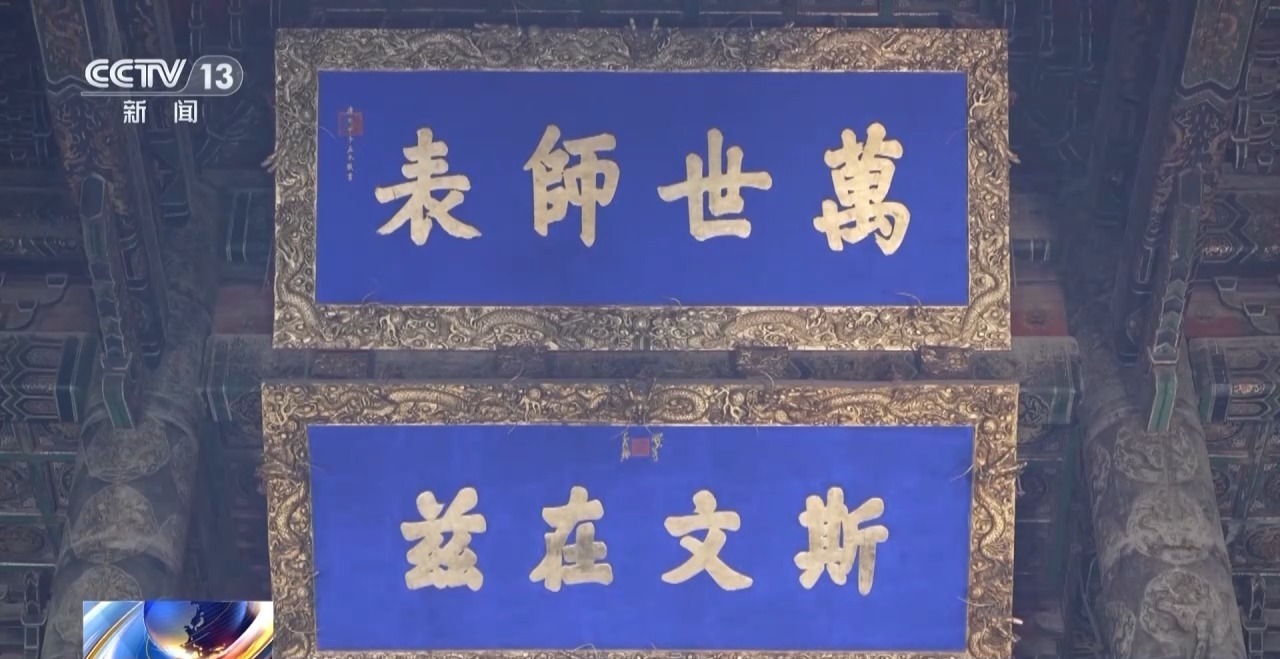 CCTV 13
新闻
萬世師表
斯文在兹